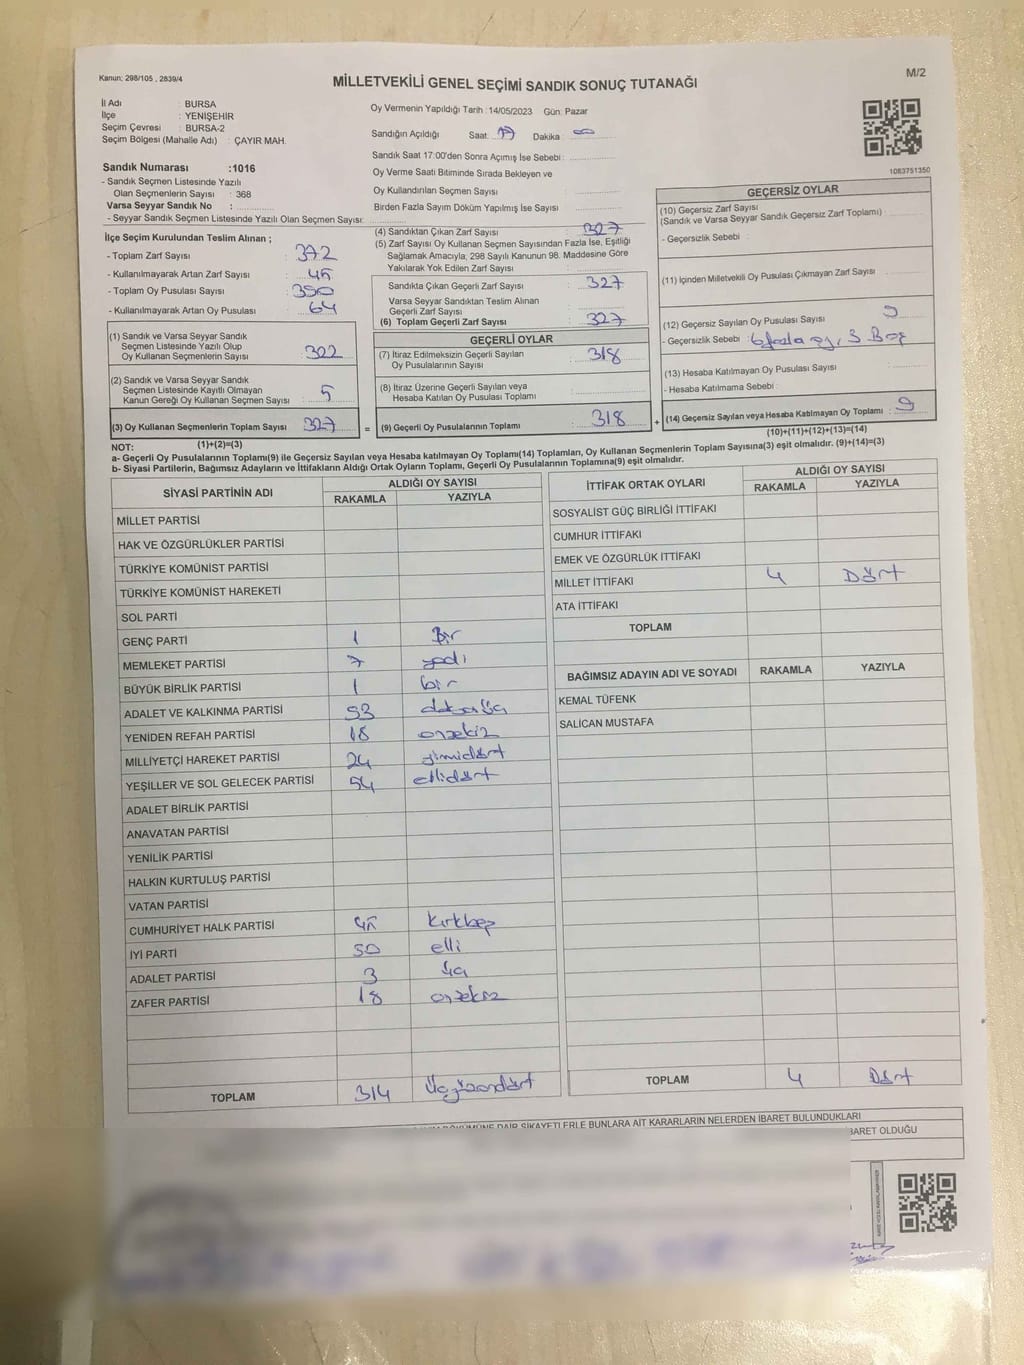 Kanun; 298/105 , 2839/4
MİLLETVEKİLİ GENEL SEÇİMİ SANDIK SONUÇ TUTANAĞI
M/2
İl Adı : BURSA
İlçe : YENİŞEHİR
Seçim Çevresi : BURSA-2
Seçim Bölgesi (Mahalle Adı) : ÇAYIR MAH.
Sandık Numarası :1016
- Sandık Seçmen Listesinde Yazılı
Olan Seçmenlerin Sayısı : 368
Varsa Seyyar Sandık No :
- Seyyar Sandık Seçmen Listesinde Yazılı Olan Seçmen Sayısı:
Oy Vermenin Yapıldığı Tarih :14/05/2023 Gün: Pazar
Sandığın Açıldığı Saat: 17 Dakika : 00
Sandık Saat 17:00'den Sonra Açımış İse Sebebi :
Oy Verme Saati Bitiminde Sırada Bekleyen ve
Oy Kullandırılan Seçmen Sayısı
Birden Fazla Sayım Döküm Yapılmış İse Sayısı
1083751350
İlçe Seçim Kurulundan Teslim Alınan ;
- Toplam Zarf Sayısı : 372
- Kullanılmayarak Artan Zarf Sayısı : 45
- Toplam Oy Pusulası Sayısı : 390
- Kullanılmayarak Artan Oy Pusulası : 64
(1) Sandık ve Varsa Seyyar Sandık
Seçmen Listesinde Yazılı Olup
Oy Kullanan Seçmenlerin Sayısı : 322
(2) Sandık ve Varsa Seyyar Sandık
Seçmen Listesinde Kayıtlı Olmayan
Kanun Gereği Oy Kullanan Seçmen Sayısı : 5
(3) Oy Kullanan Seçmenlerin Toplam Sayısı : 327
(1)+(2)=(3)
(4) Sandıktan Çıkan Zarf Sayısı : 327
(5) Zarf Sayısı Oy Kullanan Seçmen Sayısından Fazla İse, Eşitliği
Sağlamak Amacıyla; 298 Sayılı Kanunun 98. Maddesine Göre
Yakılarak Yok Edilen Zarf Sayısı
Sandıkta Çıkan Geçerli Zarf Sayısı : 327
Varsa Seyyar Sandıktan Teslim Alınan
Geçerli Zarf Sayısı
(6) Toplam Geçerli Zarf Sayısı : 327
GEÇERLİ OYLAR
(7) İtiraz Edilmeksizin Geçerli Sayılan
Oy Pusulalarının Sayısı : 318
(8) İtiraz Üzerine Geçerli Sayılan veya
Hesaba Katılan Oy Pusulası Toplamı
= (9) Geçerli Oy Pusulalarının Toplamı : 318 +
GEÇERSİZ OYLAR
(10) Geçersiz Zarf Sayısı
(Sandık ve Varsa Seyyar Sandık Geçersiz Zarf Toplamı)
- Geçersizlik Sebebi :
(11) İçinden Milletvekili Oy Pusulası Çıkmayan Zarf Sayısı :
(12) Geçersiz Sayılan Oy Pusulası Sayısı : 9
- Geçersizlik Sebebi : 6 fazla oy, 3 Boş
(13) Hesaba Katılmayan Oy Pusulası Sayısı :
- Hesaba Katılmama Sebebi :
(14) Geçersiz Sayılan veya Hesaba Katılmayan Oy Toplamı : 9
(10)+(11)+(12)+(13)=(14)
NOT:
a- Geçerli Oy Pusulalarının Toplamı(9) ile Geçersiz Sayılan veya Hesaba katılmayan Oy Toplamı(14) Toplamları, Oy Kullanan Seçmenlerin Toplam Sayısına(3) eşit olmalıdır. (9)+(14)=(3)
b- Siyasi Partilerin, Bağımsız Adayların ve İttifakların Aldığı Ortak Oyların Toplamı, Geçerli Oy Pusulalarının Toplamına(9) eşit olmalıdır.
SİYASİ PARTİNİN ADI ALDIĞI OY SAYISI
RAKAMLA YAZIYLA
MİLLET PARTİSİ
HAK VE ÖZGÜRLÜKLER PARTİSİ
TÜRKİYE KOMÜNİST PARTİSİ
TÜRKİYE KOMÜNİST HAREKETİ
SOL PARTİ
GENÇ PARTİ 1 Bir
MEMLEKET PARTİSİ 7 yedi
BÜYÜK BİRLİK PARTİSİ 1 bir
ADALET VE KALKINMA PARTİSİ 93 doksanüç
YENİDEN REFAH PARTİSİ 18 onsekiz
MİLLİYETÇİ HAREKET PARTİSİ 24 yirmidört
YEŞİLLER VE SOL GELECEK PARTİSİ 54 ellidört
ADALET BİRLİK PARTİSİ
ANAVATAN PARTİSİ
YENİLİK PARTİSİ
HALKIN KURTULUŞ PARTİSİ
VATAN PARTİSİ
CUMHURİYET HALK PARTİSİ 45 kırkbeş
İYİ PARTİ 50 elli
ADALET PARTİSİ 3 üç
ZAFER PARTİSİ 18 onsekiz
TOPLAM 314 Üçyüzondört
İTTİFAK ORTAK OYLARI ALDIĞI OY SAYISI
RAKAMLA YAZIYLA
SOSYALİST GÜÇ BİRLİĞİ İTTİFAKI
CUMHUR İTTİFAKI
EMEK VE ÖZGÜRLÜK İTTİFAKI
MİLLET İTTİFAKI 4 Dört
ATA İTTİFAKI
TOPLAM
BAĞIMSIZ ADAYIN ADI VE SOYADI RAKAMLA YAZIYLA
KEMAL TÜFENK
SALİCAN MUSTAFA
TOPLAM 4 Dört
DAİR ŞİKAYETLERLE BUNLARA AİT KARARLARIN NELERDEN İBARET BULUNDUKLARI
BARET OLDUĞU